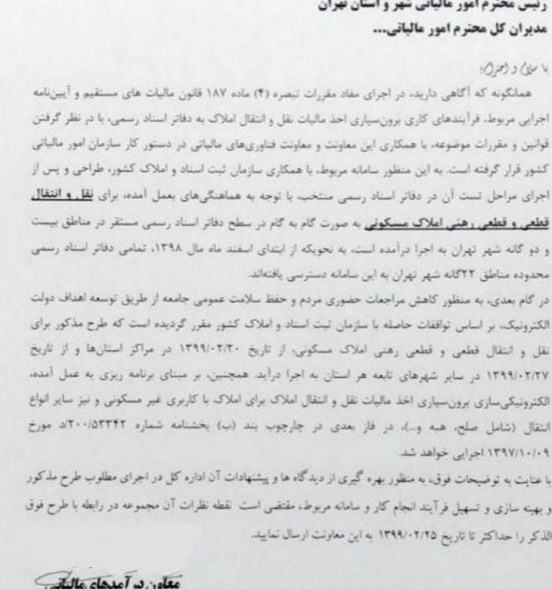 رئیس محترم امور مالیاتی شهر و استان تهران
مدیران کل محترم امور مالیاتی...
با سلام و احترام؛
همانگونه که آگاهی دارید، در اجرای مفاد مقررات تبصره (۴) ماده ۱۸۷ قانون مالیات های مستقیم و آیین‌نامه
اجرایی مربوط، فرآیندهای کاری برون‌سپاری اخذ مالیات نقل و انتقال املاک به دفاتر اسناد رسمی، با در نظر گرفتن
قوانین و مقررات موضوعه، با همکاری این معاونت و معاونت فناوری‌های مالیاتی در دستور کار سازمان امور مالیاتی
کشور قرار گرفته است. به این منظور سامانه مربوط، با همکاری سازمان ثبت اسناد و املاک کشور، طراحی و پس از
اجرای مراحل تست آن در دفاتر اسناد رسمی منتخب، با توجه به هماهنگی‌های بعمل آمده، برای نقل و انتقال
قطعی و قطعی رهنی املاک مسکونی به صورت گام به گام در سطح دفاتر اسناد رسمی مستقر در مناطق بیست
و دو گانه شهر تهران به اجرا درآمده است، به نحویکه از ابتدای اسفند ماه سال ۱۳۹۸، تمامی دفاتر اسناد رسمی
محدوده مناطق ۲۲گانه شهر تهران به این سامانه دسترسی یافته‌اند.
در گام بعدی، به منظور کاهش مراجعات حضوری مردم و حفظ سلامت عمومی جامعه از طریق توسعه اهداف دولت
الکترونیک، بر اساس توافقات حاصله با سازمان ثبت اسناد و املاک کشور مقرر گردیده است که طرح مذکور برای
نقل و انتقال قطعی و قطعی رهنی املاک مسکونی، از تاریخ ۱۳۹۹/۰۲/۲۰ در مراکز استان‌ها و از تاریخ
۱۳۹۹/۰۲/۲۷ در سایر شهرهای تابعه هر استان به اجرا درآید. همچنین، بر مبنای برنامه ریزی به عمل آمده،
الکترونیکی‌سازی برون‌سپاری اخذ مالیات نقل و انتقال املاک برای املاک با کاربری غیر مسکونی و نیز سایر انواع
انتقال (شامل صلح، هبه و...)، در فاز بعدی در چارچوب بند (ب) بخشنامه شماره ۲۰۰/۵۳۳۴۲/د مورخ
۱۳۹۷/۱۰/۰۹ اجرایی خواهد شد.
با عنایت به توضیحات فوق، به منظور بهره گیری از دیدگاه ها و پیشنهادات آن اداره کل در اجرای مطلوب طرح مذکور
و بهینه سازی و تسهیل فرآیند انجام کار و سامانه مربوط، مقتضی است نقطه نظرات آن مجموعه در رابطه با طرح فوق
الذکر را حداکثر تا تاریخ ۱۳۹۹/۰۲/۲۵ به این معاونت ارسال نمایید.
معاون درآمدهای مالیاتی